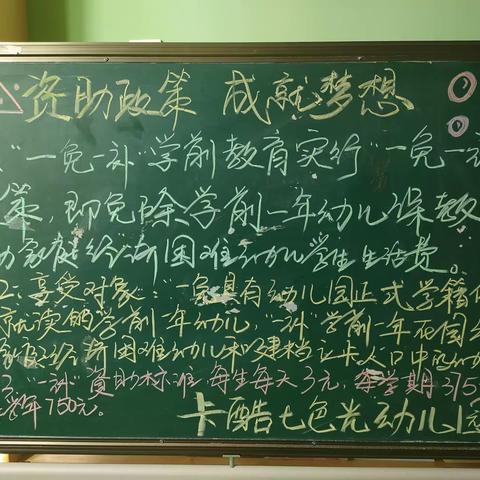 资助政策 成就梦想
"一免一补"学前教育实行"一免一补
策,即免除学前一年幼儿保教
家庭经济困难幼儿学生生活费。
2:享受对象:"一免"具有幼儿园正式学籍
就读的学前一年幼儿,"一补"学前一年在园
家庭经济困难幼儿和建档立卡人口中的幼
3."一补"资助标准,每生每天3元,每学期375
学年750元。
卡酷七色光幼儿园